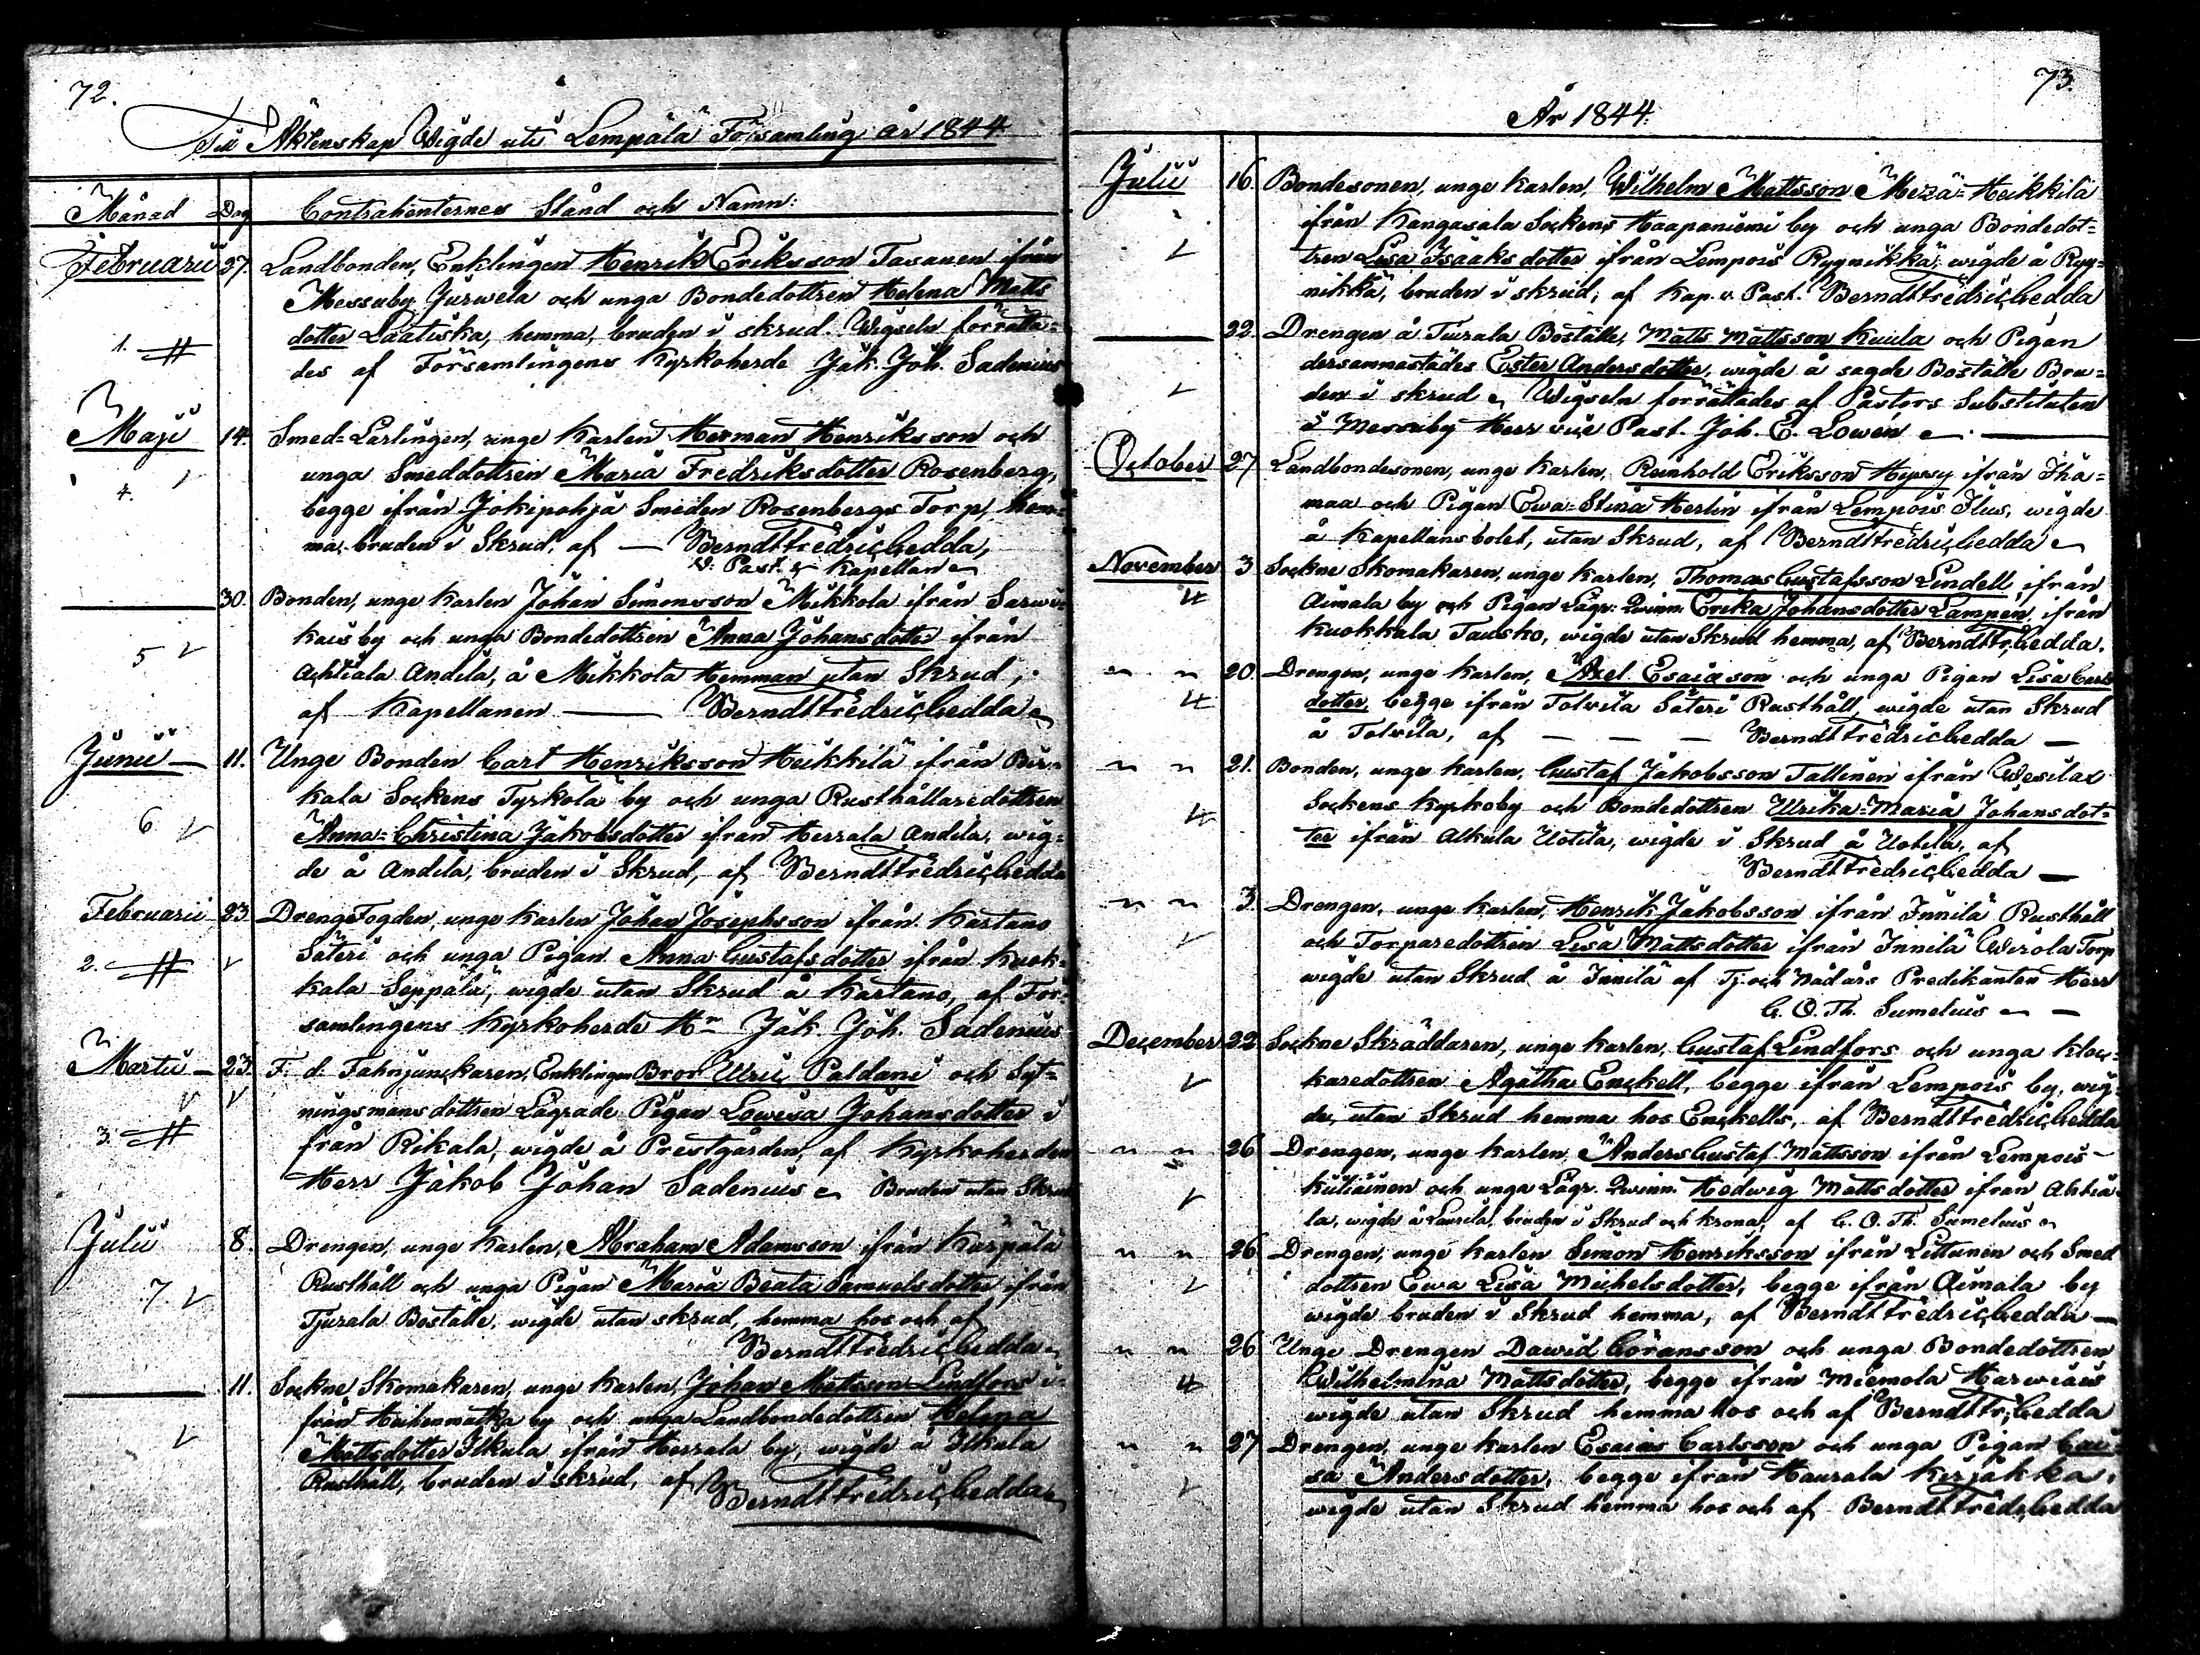 72.
Till Äktenskap Wigde uti Lempälä Församling år 1844.
Månad Dag Contrahenternes Stånd och Namn:
Februarii 27. Landbonden, Enklingen Henrik Eriksson Tasanen ifrån
Messuby Jurwela och unga Bondedottren Helena Matts
dotter Laatiska, hemma, bruden i skrud. Wigseln förrätta-
1. des af Församlingens Kyrkoherde Jak. Joh. Sadenius
Maji 14. Smed-Lärlingen, unge Karlen Herman Henriksson och
unga Smeddottren Maria Fredriksdotter Rosenberg,
4. begge ifrån Jokipohja Smeden Rosenbergs Torp, hem-
ma, bruden i Skrud, af — Berndt Fredric Gedda,
v. Past. & Kapellan
30. Bonden, unge Karlen Johan Simonsson Mikkola ifrån Sarwi-
kais by och unga Bondedottren Anna Johansdotter ifrån
5 Achtiala Andila, å Mikkola Hemman utan Skrud,
af Kapellanen — Berndt Fredric Gedda
Junii — 11. Unge Bonden Carl Henriksson Heikkilä ifrån Bir-
kala Sockens Tyrkölä by och unga Rusthållaredottren
6 Anna-Christina Jakobsdotter ifrån Herrala Andila, wig-
de å Andila, bruden i Skrud, af Berndt Fredric Gedda
Februarii 23. DrengeFogden, unge Karlen Johan Josephsson ifrån Kartano
Säteri och unga Pigan Anna Gustafsdotter ifrån Kuok-
2. kala Seppälä, wigde utan Skrud å Kartano, af För-
samlingens Kyrkoherde Hr Jak. Joh. Sadenius
Martii — 23. F. d. Fahnjunckaren, Enklingen Bror Ulric Paldani och Syt-
ningsmansdottren Lägrade Pigan Lowisa Johansdotter i-
3. från Rikala, wigde å Prestgården, af Kyrkoherden
Herr Jakob Johan Sadenius Bruden utan Skrud
Julii 8. Drengen, unge Karlen, Abraham Adamsson ifrån Karpala
Rusthåll och unga Pigan Maria Beata Samuelsdotter ifrån
7. Tjurala Boställe, wigde utan skrud, hemma hos och af
Berndt Fredric Gedda
11. Sockne Skomakaren, unge Karlen, Johan Mattsson Lindfors i-
från Heikenmatka by och unga Landbondedottren Helena
Mattsdotter Ilkula ifrån Herrala by, wigde å Ilkula
Rusthåll, bruden i skrud, af Berndt Fredric Gedda
73.
År 1844.
Julii 16. Bondesonen, unge Karlen, Wilhelm Mattsson Mezä-Heikkilä
ifrån Kangasala Sockens Haapaniemi by och unga Bondedot-
tren Lisa Isaaksdotter ifrån Lempois Ryynikkä, wigde å Ryy-
nikkä, bruden i skrud, af Kap. v. Past. Berndt Fredric Gedda
22. Drengen å Tiurala Boställe, Matts Mattsson Kuula och Pigan
dersammastädes Ester Andersdotter, wigde å sagde Boställe Bru-
den i skrud Wigseln förrättades af Pastors Substituten
i Messuby Herr vice Past. Joh. E. Lowen
October 27 Landbondesonen, unge Karlen, Reinhold Eriksson Hyssy ifrån Iha-
maa och Pigan Ewa-Stina Herlin ifrån Lempois Ilus, wigde
å Kapellansbolet, utan Skrud, af Berndt Fredric Gedda
November 3 Sockne Skomakaren, unge Karlen, Thomas Gustafsson Lindell, ifrån
Aimala by och Pigan Lägr. Qwinn. Erika Johansdotter Lampen, ifrån
Kuokkala Tausko, wigde utan Skrud hemma, af Berndt Fr. Gedda.
" " 20. Drengen, unge Karlen, Axel Esaiason och unga Pigan Lisa Carls
dotter, begge ifrån Tolvila Säteri Rusthåll, wigde utan Skrud
å Tolvila, af — — — Berndt Fredric Gedda —
" " 21. Bonden, unge Karlen, Gustaf Jakobsson Tallinen ifrån Wesilax
Sockens Kyrkoby och Bondedottren Ulrika-Maria Johansdot-
ter ifrån Alkula Uotila, wigde i Skrud å Uotila, af
Berndt Fredric Gedda —
" " 3. Drengen, unge Karlen, Henrik Jakobsson ifrån Innilä Rusthåll
och Torparedottren Lisa Mattsdotter ifrån Innilä Wirola Torp
wigde utan Skrud å Innilä af Tj. och Nådårs Predikanten Herr
G. O. Th. Sumelius —
December 22 Sockne Skräddaren, unge Karlen, Gustaf Lindfors och unga Kloc-
karedottren Agatha Enckell, begge ifrån Lempois by, wig-
de, utan Skrud hemma hos Enckells, af Berndt Fredric Gedda
" " 26 Drengen, unge Karlen, Anders Gustaf Mattsson ifrån Lempois-
Kuliäinen och unga Lägr. Qwinn. Hedwig Mattsdotter ifrån Ahtia-
la, wigde å Laurila, bruden i Skrud och krona, af G. O. Th. Sumelius
" " 26 Drengen, unge Karlen Simon Henriksson ifrån Littunen och Smed
dottren Ewa Lisa Michelsdotter, begge ifrån Aimala by
wigde bruden i Skrud hemma, af Berndt Fredric Gedda —
" " 26 Unge Drengen Dawid Göransson och unga Bondedottren
Wilhelmina Mattsdotter, begge ifrån Miemola Harwiais
wigde utan Skrud hemma hos och af Berndt Fr. Gedda
" " 27 Drengen, unge Karlen Esaias Carlsson och unga Pigan Cai-
sa Andersdotter, begge ifrån Haurala Kirjakka,
wigde utan Skrud hemma hos och af Berndt Fredr. Gedda